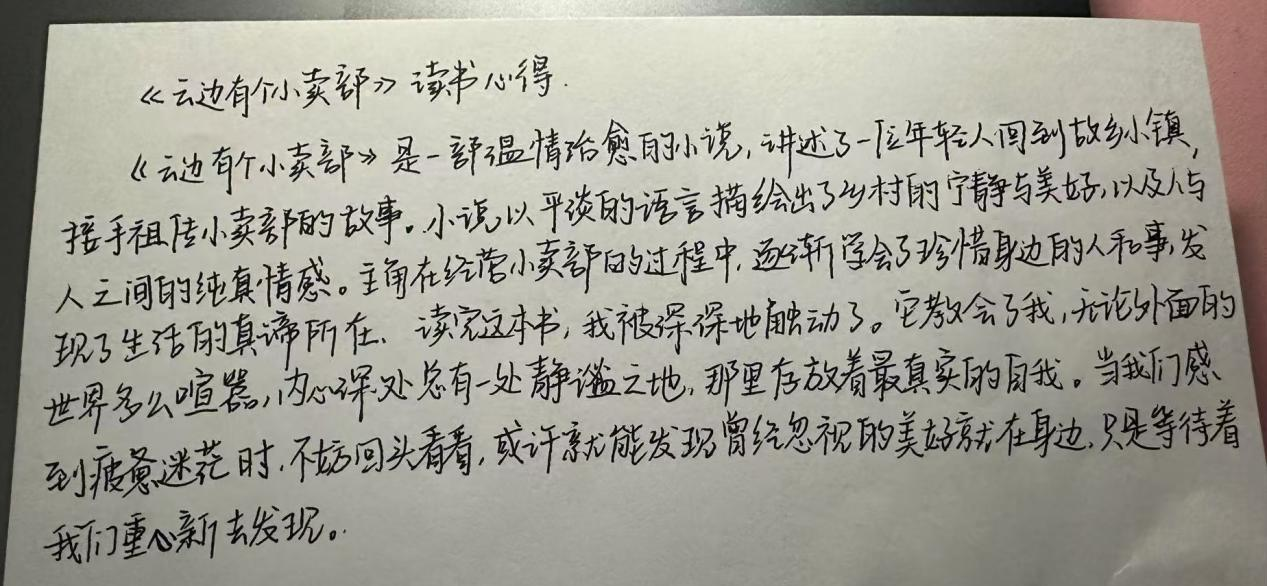 《云边有个小卖部》读书心得.
《云边有个小卖部》是一部温情治愈的小说,讲述了一位年轻人回到故乡小镇,
接手祖传小卖部的故事。小说以平淡的语言描绘出了乡村的宁静与美好,以及人与
人之间的纯真情感。主角在经营小卖部的过程中,逐渐学会了珍惜身边的人和事,发
现了生活的真谛所在、读完这本书,我被深深地触动了。它教会了我,无论外面的
世界多么喧嚣,内心深处总有一处静谧之地,那里存放着最真实的自我。当我们感
到疲惫迷茫时,不妨回头看看,或许就能发现曾经忽视的美好就在身边,只是等待着
我们重心新去发现。